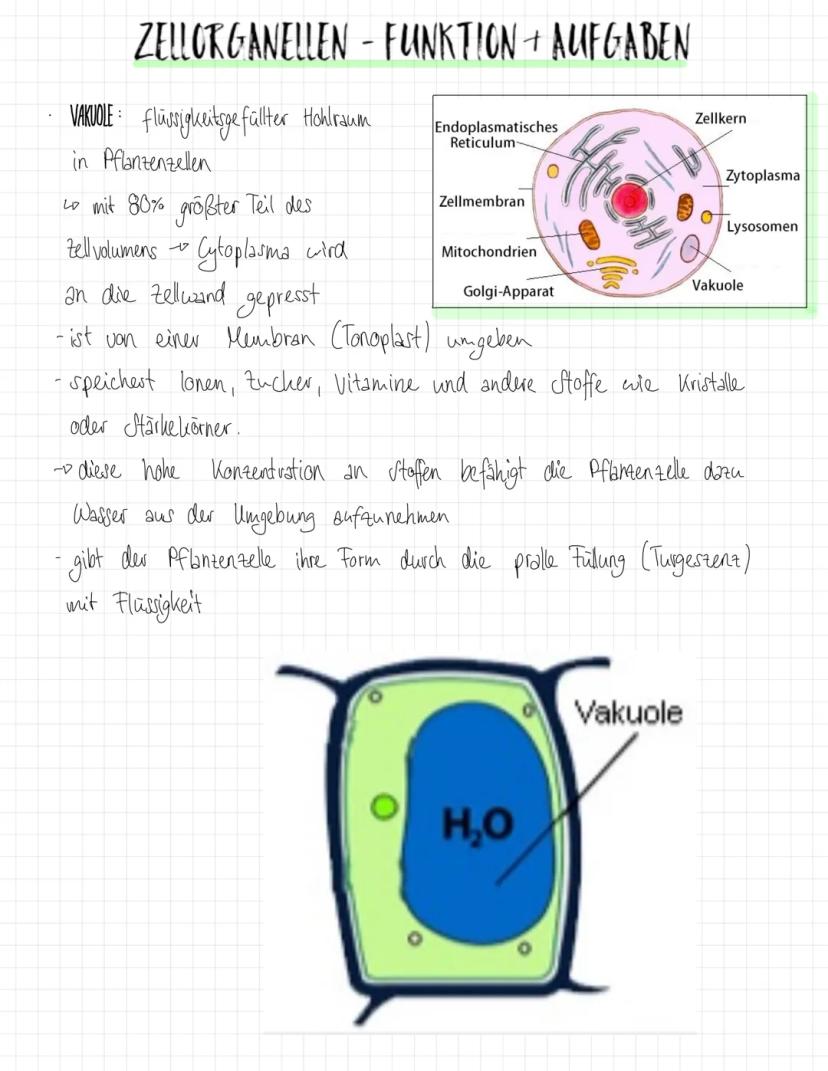 ZELLORGANELLEN - FUNKTION + AUFGABEN
· VAKUOLE: flüssigkeitsgefüllter Hohlraum
in Pflanzenzellen
↳ mit 80% größter Teil des
Zellvolumens → Cytoplasma wird
an die Zellwand gepresst
- ist von einer Membran (Tonoplast) umgeben
- speichert Ionen, Zucker, Vitamine und andere Stoffe wie Kristalle
oder Stärkekörner.
→ diese hohe Konzentration an Stoffen befähigt die Pflanzenzelle dazu
Wasser aus der Umgebung aufzunehmen
- gibt der Pflanzenzelle ihre Form durch die pralle Füllung (Turgeszenz)
mit Flüssigkeit
Endoplasmatisches
Reticulum
Zellmembran
Mitochondrien
Golgi-Apparat
Zellkern
Zytoplasma
Lysosomen
Vakuole
Vakuole
H₂O